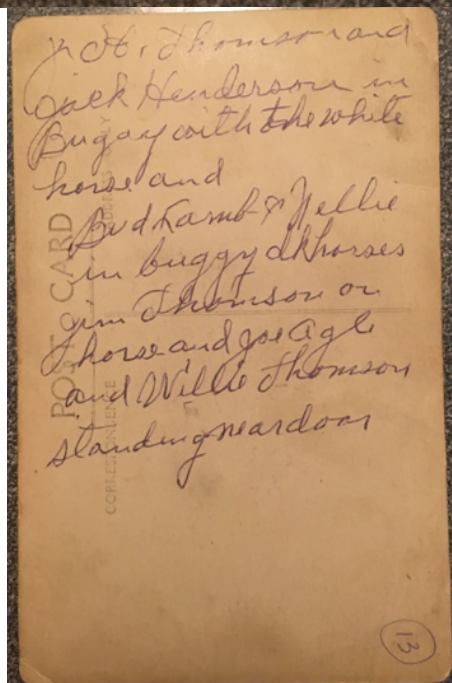 J. H. Thomson and
Jack Henderson in
Bugay with the white
horse and
Bud Lamb & Nellie
in buggy dk horses
Jim Thomson on
horse and Joe Agle
and Willie Thomson
standing near door
POST CARD
CORRESPONDENCE
ADDRESS ONLY
13